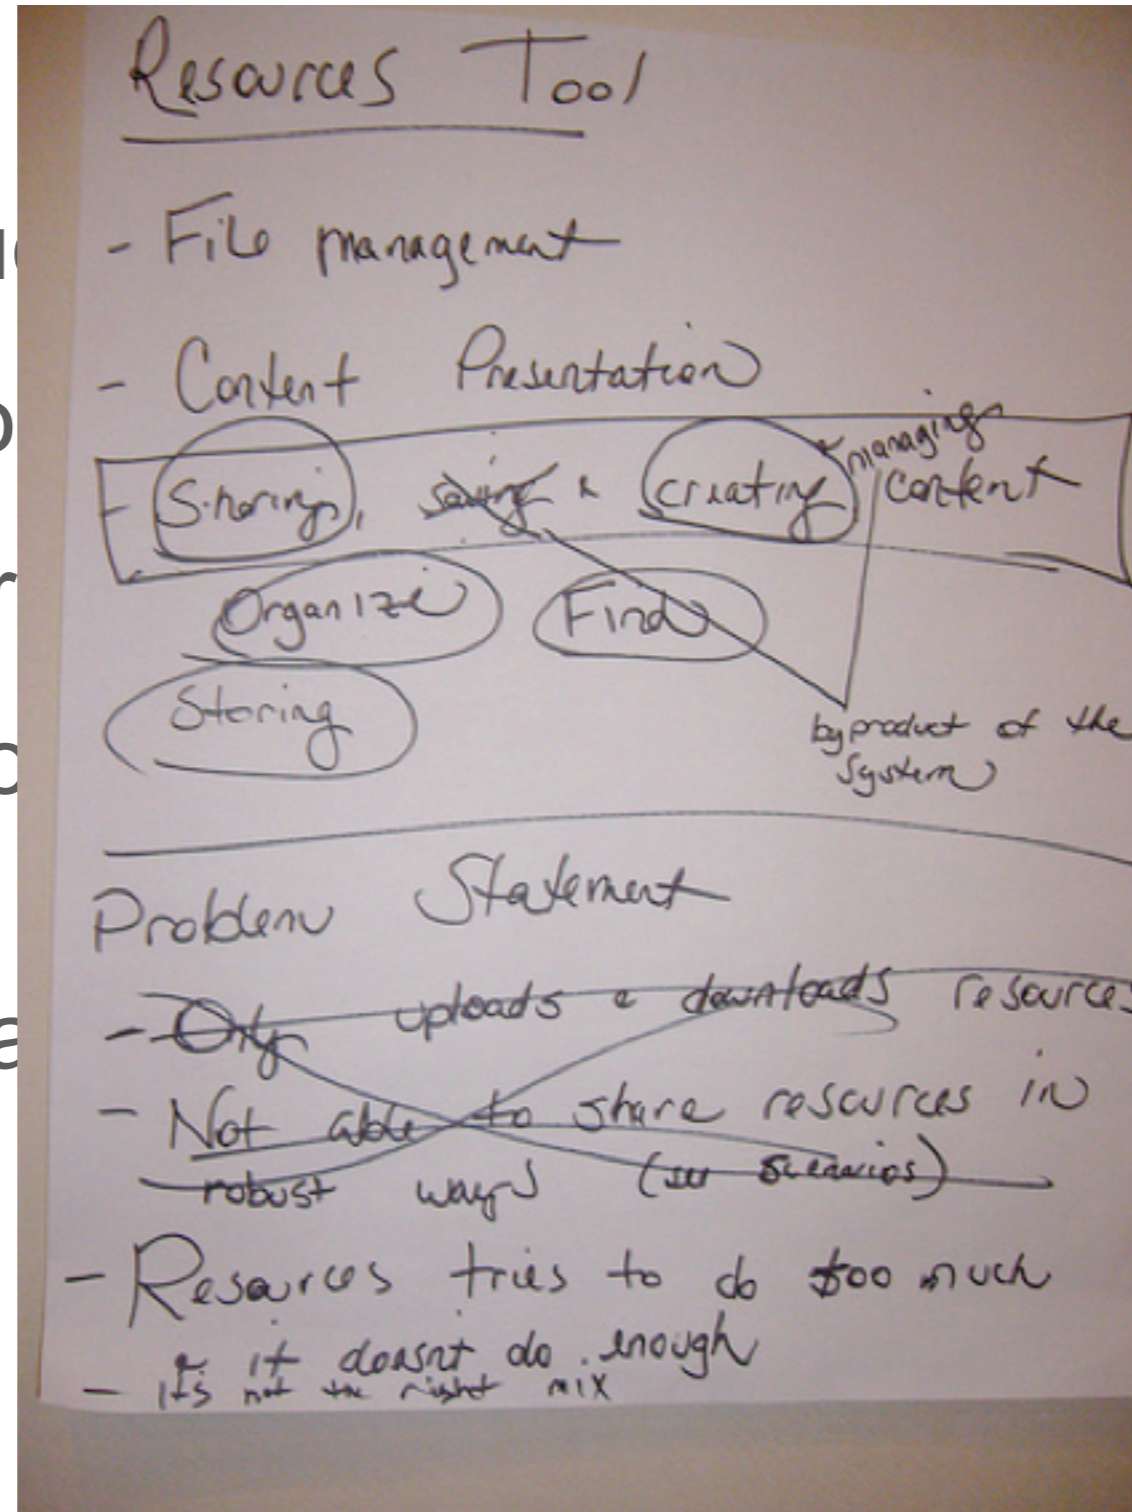 Resources Tool
- File management
- Content Presentation
- Sharing, saving & creating & managing content
Organize Find
Storing
by product of the
system
Problem Statement
- Only uploads & downloads resources
- Not able to share resources in
robust ways (see scenarios)
- Resources tries to do too much
& it doesnt do enough
- its not the right mix